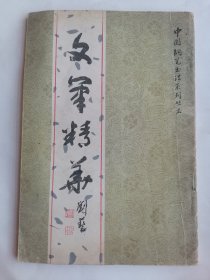 中国钢笔书法系列之五
文笔精华
刘艺